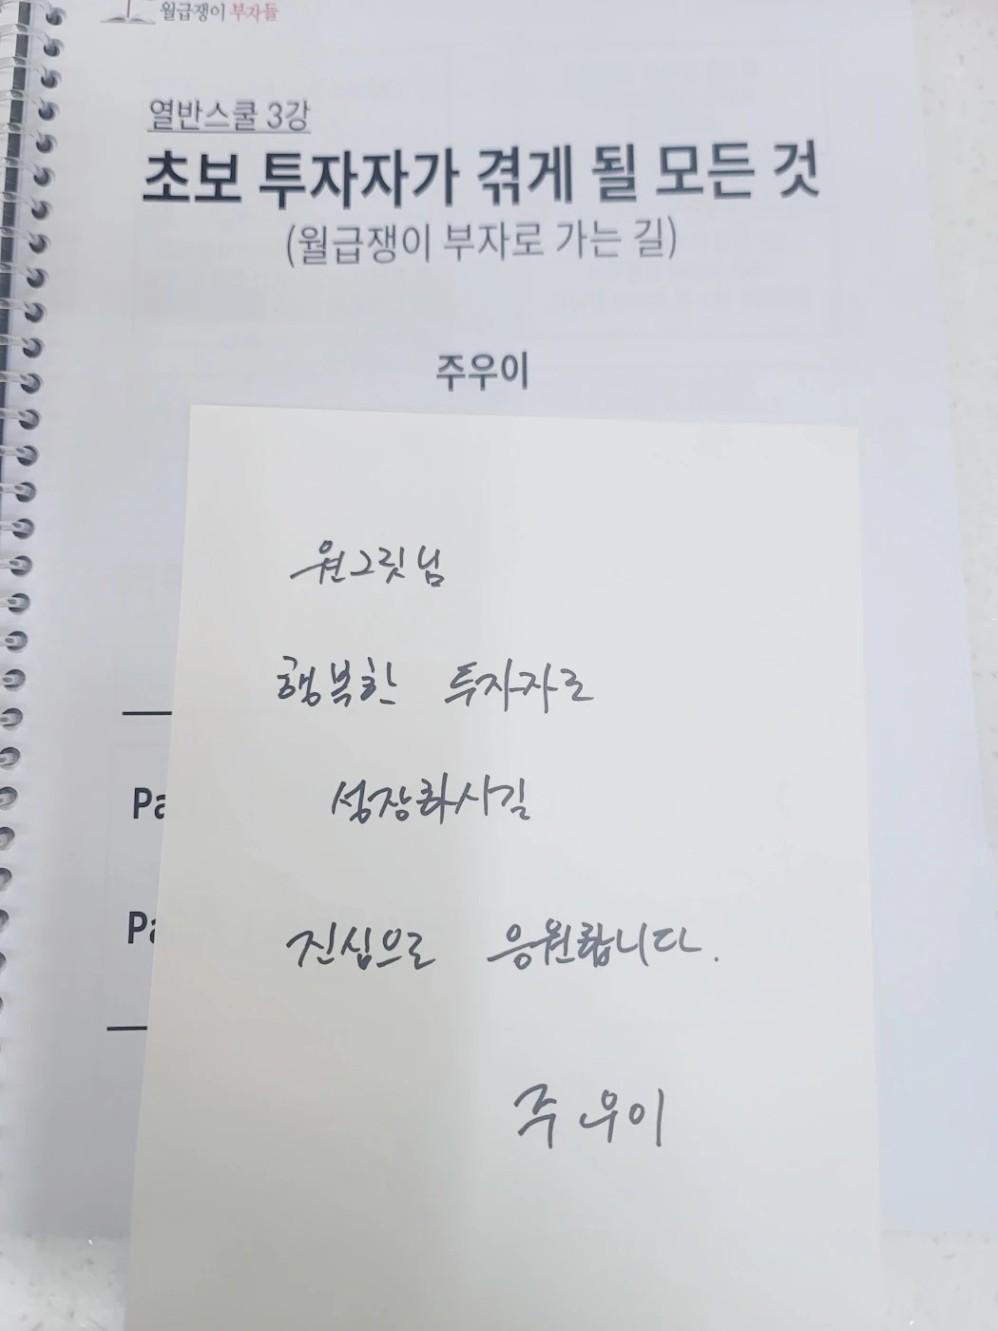 월급쟁이 부자들
열반스쿨 3강
초보 투자자가 겪게 될 모든 것
(월급쟁이 부자로 가는 길)
주우이
원그릿님
행복한 투자자로
성장하시길
진심으로 응원합니다.
주우이
Pa
Pa